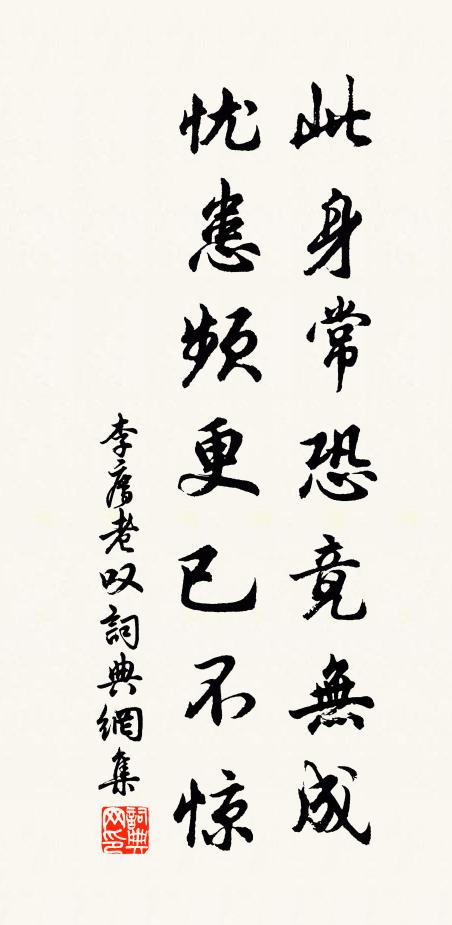 此身常恐竟無成
忧患频更已不惊
李廌老叹詞典網集
詞典网印